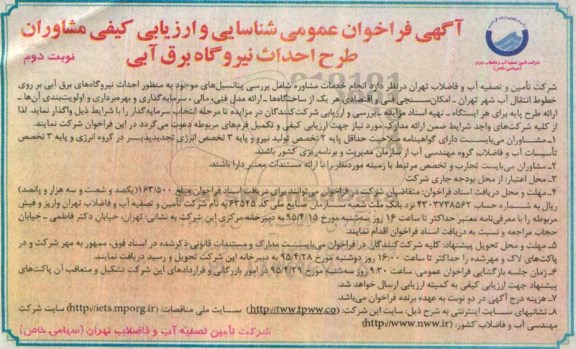 آگهی فراخوان عمومی شناسایی و ارزیابی کیفی مشاوران
طرح احداث نیروگاه برق آبی
نوبت دوم
شرکت تأمین و تصفیه آب و فاضلاب تهران
(سهامی خاص)
شرکت تأمین و تصفیه آب و فاضلاب تهران در نظر دارد انجام خدمات مشاوره شامل بررسی پتانسیل‌های موجود به منظور احداث نیروگاه‌های برق آبی بر روی
خطوط انتقال آب شهر تهران ـ امکان‌سنجی فنی و اقتصادی هر یک از ساختگاه‌ها ـ ارائه مدل فنی، مالی، سرمایه‌گذاری و بهره‌برداری و اولویت‌بندی آن‌ها ـ
ارائه طرح پایه برای هر ایستگاه ـ تهیه اسناد مزایده ـ بررسی و ارزیابی شرکت‌کنندگان در مزایده تا مرحله انتخاب سرمایه‌گذار را با شرایط ذیل واگذار نماید. لذا
از کلیه شرکت‌های واجد شرایط ضمن ارائه مدارک مورد نیاز جهت ارزیابی کیفی و تکمیل فرم‌های مربوطه دعوت می‌گردد در این فراخوان شرکت نمایند.
۱ـ مشاوران می‌بایست دارای گواهینامه صلاحیت حداقل پایه ۲ تخصص تولید نیرو و پایه ۳ تخصص انرژی تجدیدپذیر در گروه انرژی و پایه ۳ تخصص
تأسیسات آب و فاضلاب گروه مهندسی آب از سازمان مدیریت و برنامه‌ریزی کشور باشند.
۲ـ مشاوران می‌بایست تجارب و تخصص مرتبط با زمینه موردنظر را با ارائه مستندات معتبر دارا باشند.
۳ـ محل اعتبار: از محل بودجه جاری شرکت
۴ـ مهلت و محل دریافت اسناد فراخوان: متقاضیان شرکت در فراخوان می‌توانند برای دریافت اسناد فراخوان مبلغ ۱۱۶۳/۵۰۰ (یکصد و شصت و سه هزار و پانصد)
ریال به شماره حساب ۴۳۰۳۷۳۸۵۶۲ نزد بانک ملت شعبه سازمان صنایع ملی کد ۶۲۵۴۵ به نام شرکت تأمین و تصفیه آب و فاضلاب تهران واریز و فیش
مربوطه را با معرفی‌نامه معتبر حداکثر تا ساعت ۱۶ روز سه‌شنبه مورخ ۹۵/۴/۱۵ به دبیرخانه مرکزی این شرکت به نشانی: تهران، خیابان دکتر فاطمی ـ خیابان
حجاب مراجعه و نسبت به دریافت اسناد فراخوان اقدام نمایند.
۵ـ مهلت و محل تحویل پیشنهاد: کلیه شرکت‌کنندگان در فراخوان می‌بایست مدارک و مستندات قانونی ذکرشده در اسناد فوق، ممهور به مهر شرکت و در
پاکت‌های لاک و مهرشده را حداکثر تا ساعت ۱۶:۰۰ روز دوشنبه مورخ ۹۵/۴/۲۸ به دبیرخانه این شرکت تحویل و رسید دریافت نمایند.
۶ـ زمان جلسه بازگشایی فراخوان عمومی: ساعت ۹:۳۰ روز سه‌شنبه مورخ ۹۵/۴/۲۹ در امور بازرگانی و قراردادهای این شرکت تشکیل و متعاقب آن پاکت‌های
پیشنهاد جهت ارزیابی کیفی به کمیته ارزیابی ارسال خواهد شد.
۷ـ هزینه درج آگهی در دو نوبت به عهده برنده فراخوان می‌باشد.
۸ـ نشانیهای سایت اینترنتی به شرح ذیل: سایت این شرکت: (http://www.tpww.co) سایت ملی مناقصات: (http://iets.mporg.ir) سایت شرکت
مهندسی آب و فاضلاب کشور: (http://www.nww.ir)
شرکت تأمین و تصفیه آب و فاضلاب تهران (سهامی خاص)